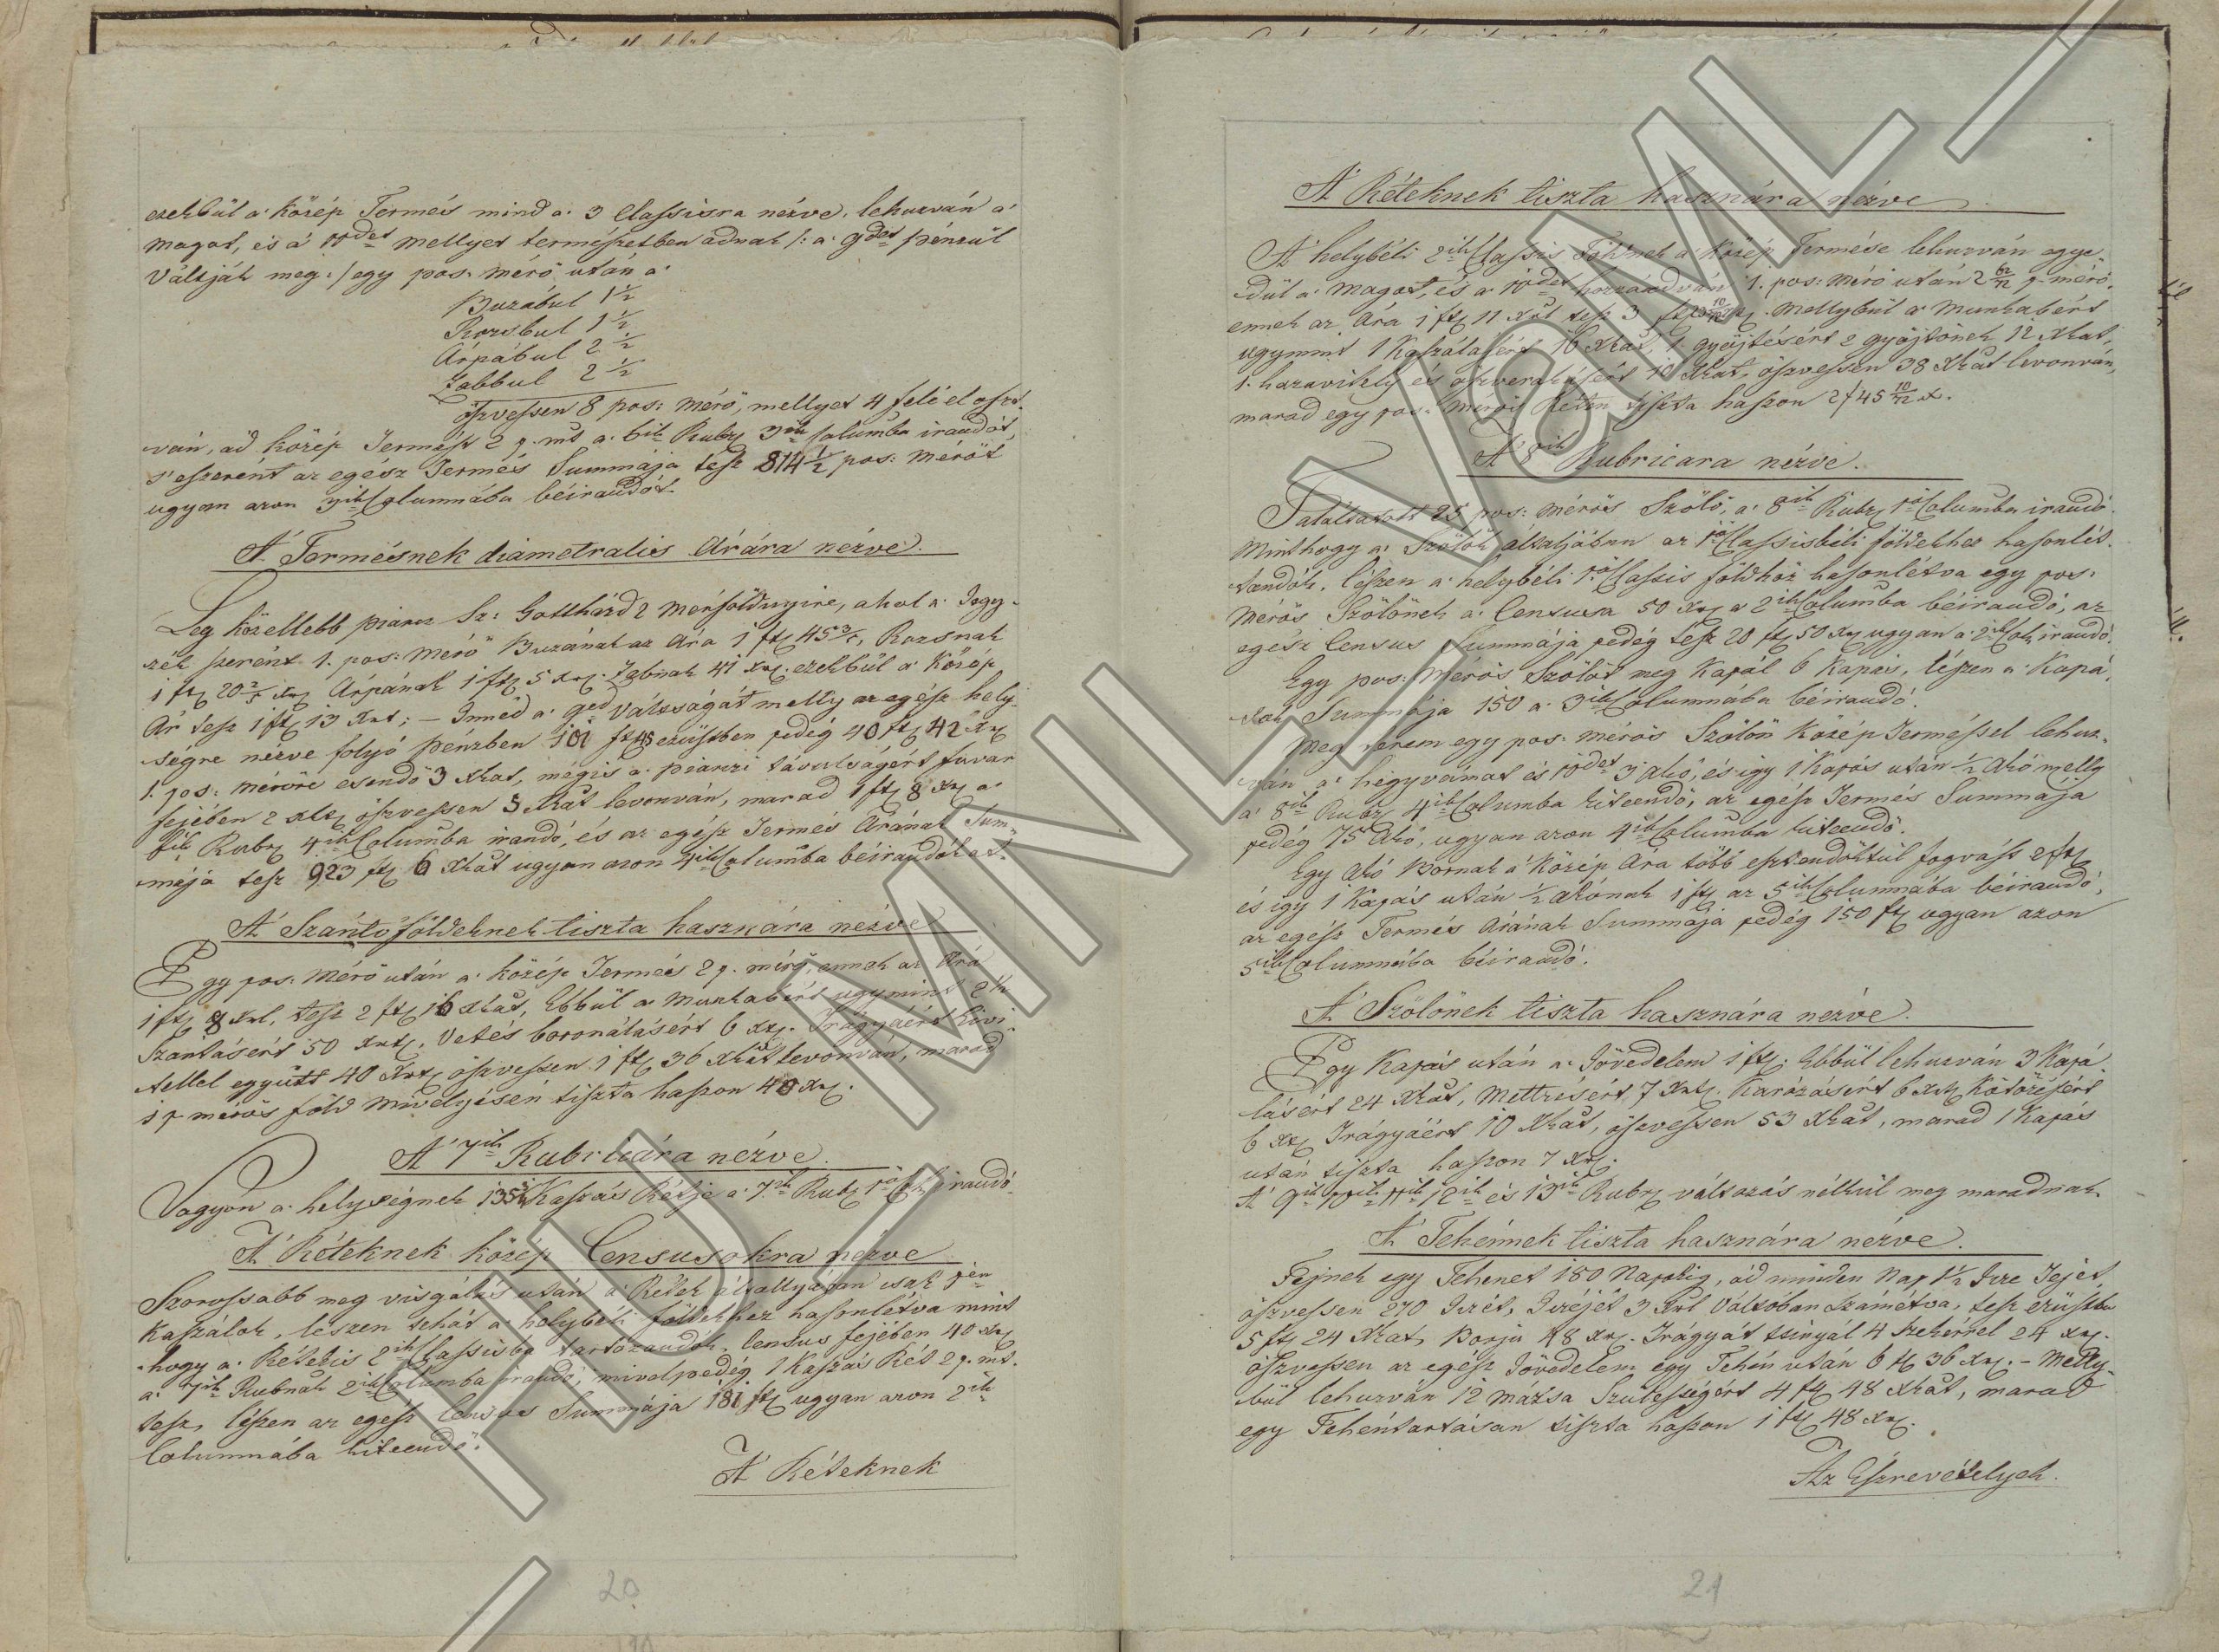 ezekbül a' közép Termés mind a' 3 Classisra nézve, lehuzván a'
magot, és a' 10det mellyet természetben adnak /: a' 9det pénzül
váltják meg :/ egy pos: mérő után a'
Buzábul 1 1/2
Rozsbul 1 1/2
Árpábul 2 1/2
Zabbul 2 1/2
öszvessen 8 pos: mérő, mellyet 4 felé eloszt-
ván, ád közép Termést 2 p. mt a' 6ik Rubr 3ik Columba irandót,
s' eszerént az egész Termés Summája tesz 814 1/2 pos: mérőt
ugyan azon 3ik Columnába béirandót.
A' Termésnek diametralis Árára nézve.
Leg közellebb piarcz Sz: Gotthárd 2 mérföldnyire, ahol a' Jegy-
zék szerént 1. pos: mérő Buzának az Ára 1 ft 45 3/5, Rozsnak
1 ft 20 2/5 xr Árpának 1 ft 5 xr. Zabnak 41 xr. ezekbül a' közép
Ár tesz 1 ft 13 xrt; – Innéd a' 9ed váltságát melly az egész hely-
ségre nézve folyó pénzben 101 ft 45 ezüstben pedég 40 ft 42 xr
1. pos: mérőre esendő 3 xrat, mégis a' piarczi távulságért fuvar
fejében 2 xr öszvessen 5 xrat levonván, marad 1 ft 8 xr a'
6ik Rubr 4ik Columba irandó, és az egész Termés Árának Sum-
mája tesz 923 ft 6 xrat ugyan azon 4ik Columba béirandókat.
A' Szántóföldeknek tiszta hasznára nézve
Egy pos: mérő után a' közép Termés 2 p. mérő, ennek az Ára
1 ft 8 xrl, tesz 2 ft 16 xrat, Ebbül a' munkabért ugymint 2
Szántásért 50 xrt, Vetés boronálásért 6 xr. Trágyáért kivi-
tellel együtt 40 xrt öszvessen 1 ft 36 xrat levonván, marad
1 p. mérős föld mivelyésén tiszta haszon 40 xr.
A' 7ik Rubricára nézve.
Vagyon a' helységnek 135 Kaszás Rétje a' 7ik Rubr 1ső Col. irandó.
A' Réteknek közép Censusokra nézve
Szorossabb meg visgálás után a' Rétek általlyában csak jen
Kaszálok, lészen tehát a' helybéli földekhez hasonlétva mint
hogy a' Rétekis 2ik Classisba tartózandók, Census fejében 40 xr
a' 7ik Rubnak 2ik Columba irandó; mivelpedég 1 Kaszás Rét 2 p. mt.
tesz, lészen az egész Census Summája 181 ft ugyan azon 2ik
Columnába kiteendő.
A' Réteknek
20
A' Réteknek tiszta hasznára nézve
A' helybéli 2ik Classis Földnek a' közép Termése lehuzván egye-
dül a' magot, és a' 10det hozzáadván 1. pos: mérő után 2 p. mérő,
ennek az Ára 1 ft 11 xrl tesz 3 ft mellybül a' munkabért
ugymint 1 Kaszálásért 16 xrat, 1. gyüjtésért 2 gyüjtőnek 12 xrat,
1. hazavitely és öszverakásért 10 xrat, öszvessen 38 xrat levonván,
marad egy pos: mérős Réten tiszta haszon 2 f 45 10/12 x.
A' 8ik Rubricara nézve.
Találtatott 25 pos: mérős Szölö, a' 8ik Rubr 1ő Columba irandó.
Minthogy a' Szölök általjában az 1ső Classisbéli földekhez hasonlét-
tandók, lészen a' helybéli 1ső Classis földhöz hasonlétva egy pos:
mérős Szölönek a' Censusa 50 xr a' 2ik Columba béirandó, az
egész Census Summája pedég tesz 20 ft 50 xr ugyan a' 2ik Col. irandó.
Egy pos: mérős Szölöt meg kapál 6 Kapás, lészen a' Kapá-
sok Summája 150 a' 3ik Columnába béirandó.
Meg terem egy pos: mérős Szölön közép Terméssel lehuz-
ván a' hegyvámat és 10det 3 akó, és így 1 Kapás után 1/2 Akó melly
a' 8ik Rubr 4ik Columba kiteendő, az egész Termés Summája
pedég 75 Akó, ugyan azon 4ik Columba kiteendő.
Egy Akó Bornak a' közép Ára több esztendőktül fogvást 2 ft
és így 1 Kapás után 1/2 akónak 1 ft az 5ik Columnába béirandó,
az egész Termés Árának Summája pedég 150 ft ugyan azon
5ik Columnába béirandó.
A' Szölönek tiszta hasznára nézve.
Egy Kapás után a' Jövedelem 1 ft. Ebbül lehuzván 3 Kapá-
lásért 24 xrat, Mettzésért 7 xrt. Karózásért 6 xrt Kötözésért
6 xr Trágyáért 10 xrat, öszvessen 53 xrat, marad 1 Kapás
után tiszta haszon 7 xr.
A' 9ik 10ik 11ik 12ik és 13ik Rubr változás nélkül meg maradnak.
A' Tehénnek tiszta hasznára nézve.
Fejnek egy Tehenet 180 Napokig, ád minden Nap 1 1/2 Icze Tejet,
öszvessen 270 Iczét, Iczéjét 3 xrl Váltóban számétva, tesz ezüstbe
5 ft 24 xrat, Borju 48 xr. Trágyát tsinyál 4 szekérrel 24 xr.
öszvessen az egész Jövedelem egy Tehén után 6 ft 36 xr. – Melly-
bül lehuzván 12 mázsa Szükességért 4 ft 48 xrat, marad
egy Tehéntartásan tiszta haszon 1 ft 48 xr.
Az Észrevételyek.
21
HU MNL VaML